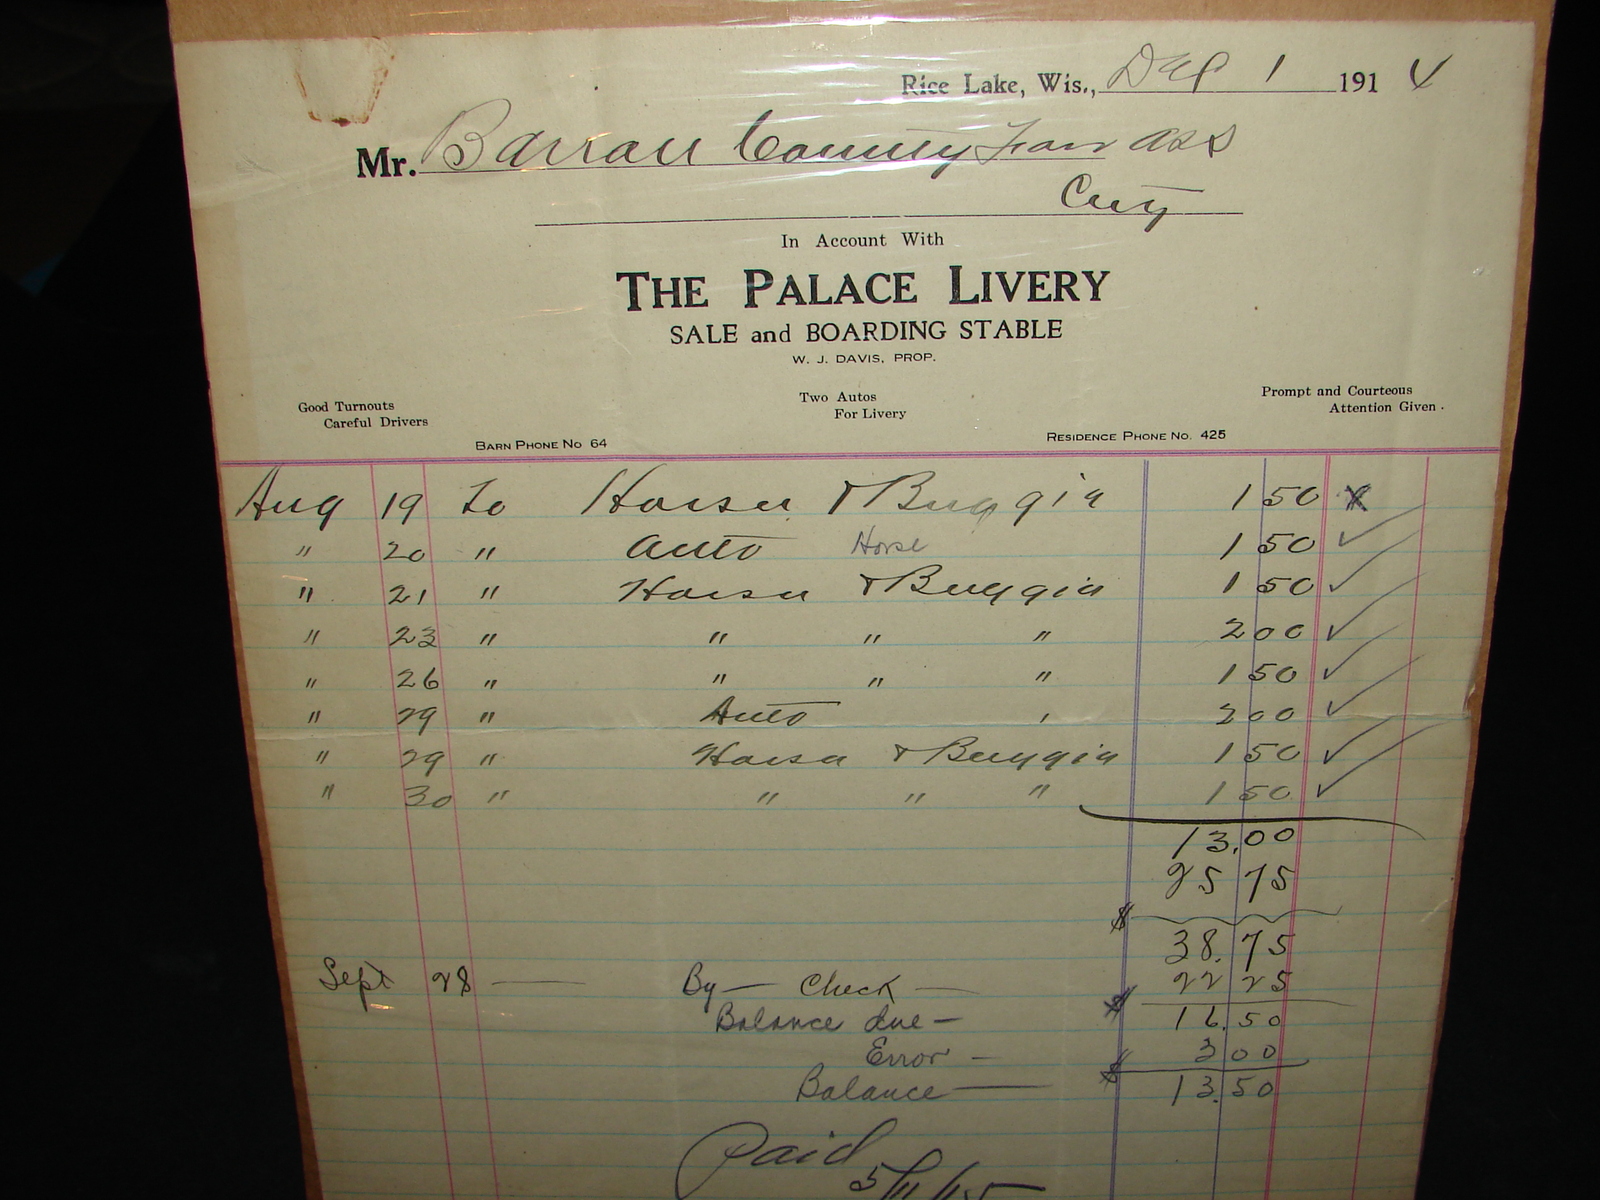 Rice Lake, Wis., Dep 1 1914
Mr. Barron County Fair Ass
City
In Account With
THE PALACE LIVERY
SALE and BOARDING STABLE
W. J. DAVIS, PROP.
Good Turnouts
Careful Drivers
Two Autos
For Livery
Prompt and Courteous
Attention Given.
BARN PHONE No 64
RESIDENCE PHONE No. 425
Aug 19 To Horse & Buggie 1 50 x
" 20 " Auto Horse 1 50 ✓
" 21 " Horse & Buggie 1 50 ✓
" 23 " " " " 2 00 ✓
" 26 " " " " 1 50 ✓
" 29 " Auto 2 00 ✓
" 29 " Horse & Buggie 1 50 ✓
" 30 " " " " 1 50 ✓
13.00
25 75
$ 38.75
Sept 28 — By — Check — 22 25
Balance due — $ 16.50
Error — 3 00
Balance — $ 13.50
Paid
5/11/15